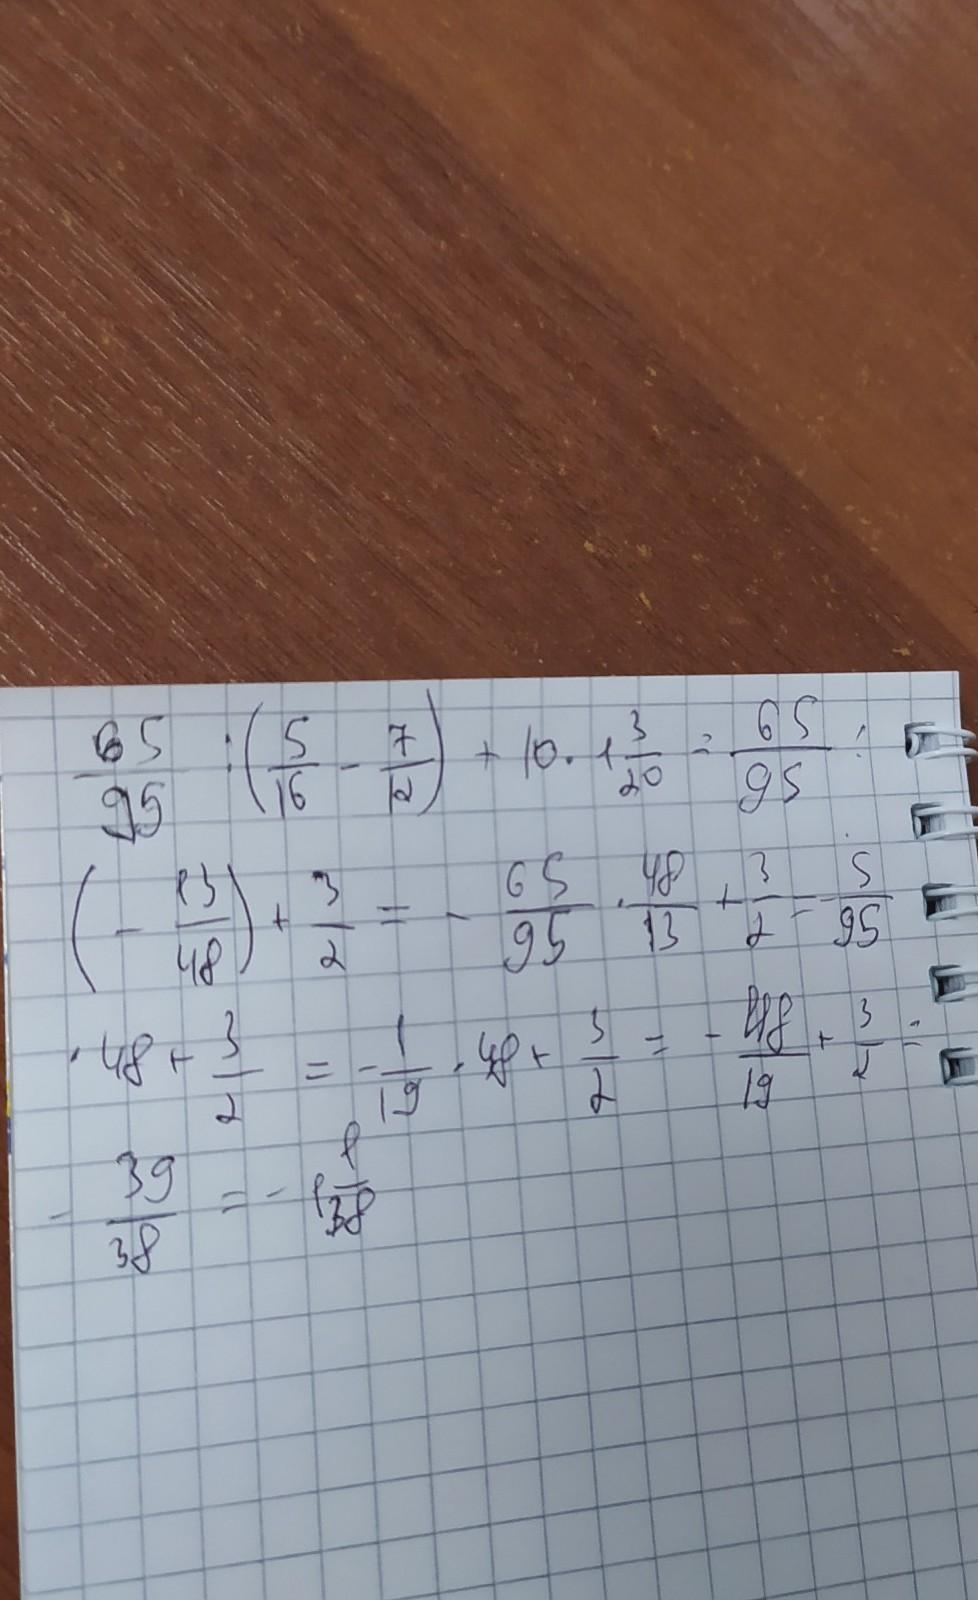 65/95 : (5/16 - 7/12) + 10 · 1 3/20 = 65/95 :
(- 13/48) + 3/2 = - 65/95 · 48/13 + 3/2 = - 5/95
· 48 + 3/2 = - 1/19 · 48 + 3/2 = - 48/19 + 3/2 =
- 39/38 = - 1 1/38